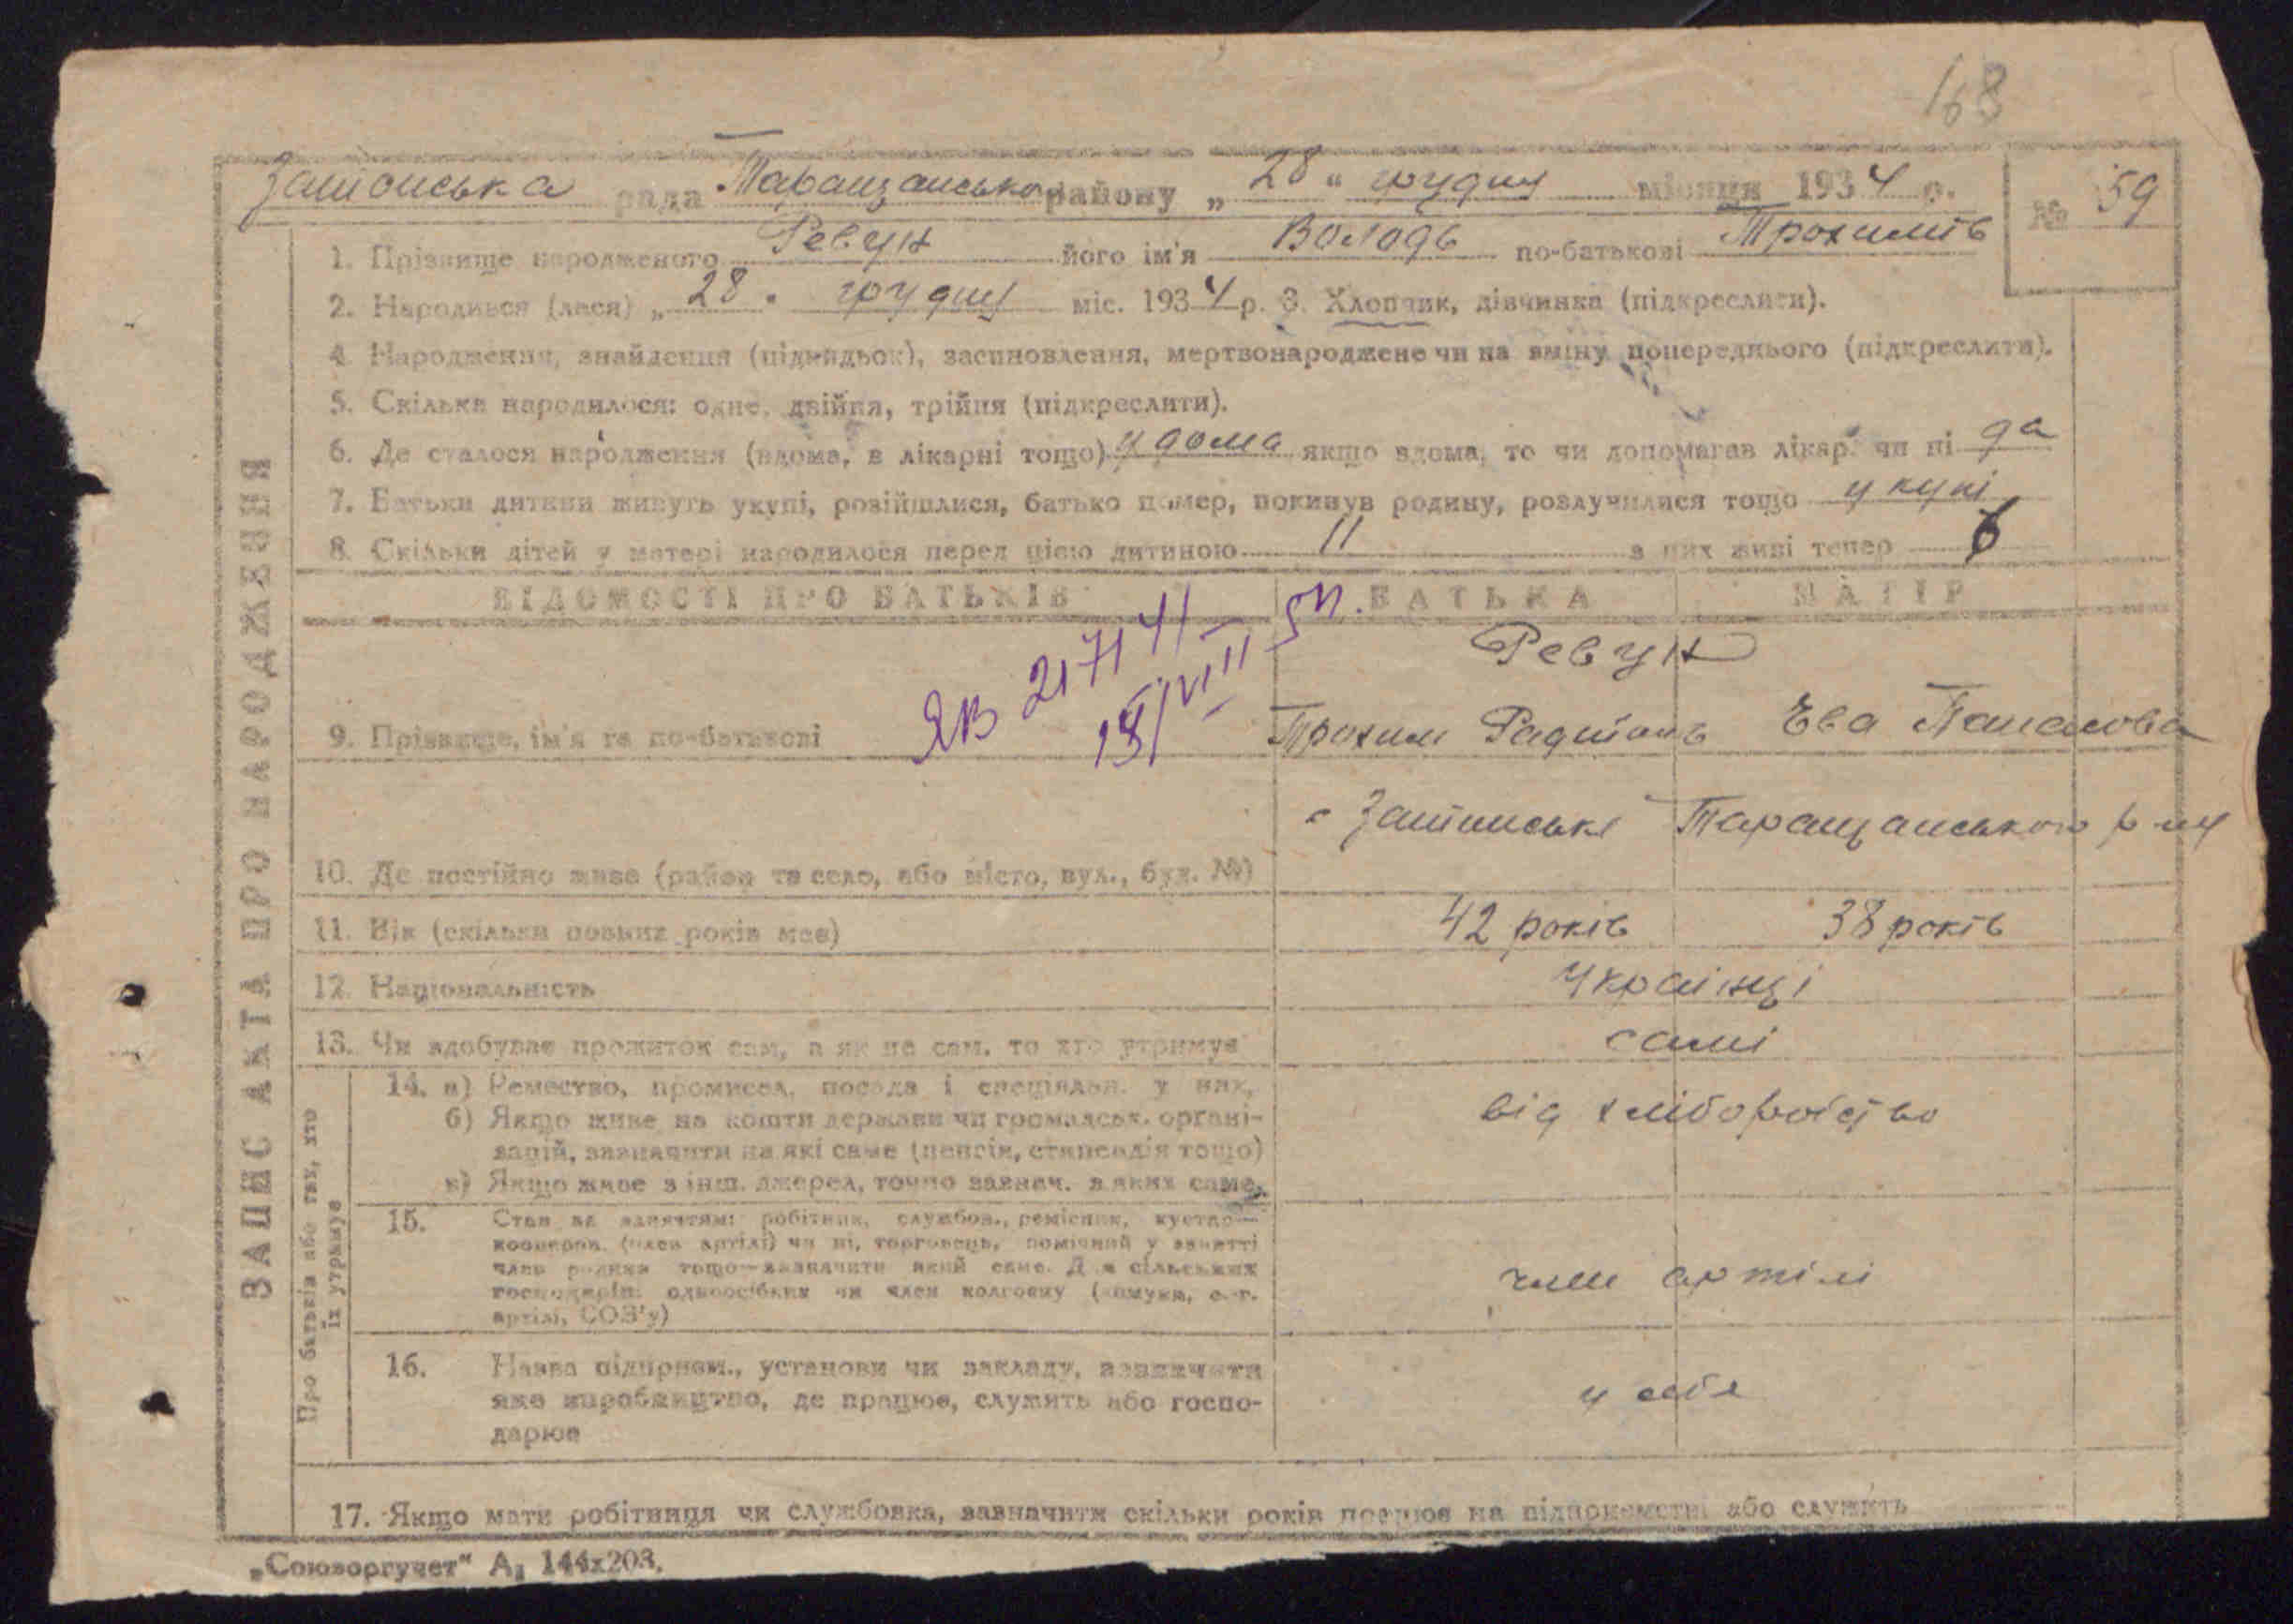 168
рада Таращанського району „ 28 “ грудня місяця 1934 р.
№ 59
1. Прізвище народженого Ревун його ім'я Володь по-батькові Трохимів
2. Народився (лася) „ 28 " грудня міс. 1934 р. 3. Хлопчик, дівчинка (підкреслити).
4. Народження, знайдення (підкидьок), засиновлення, мертвонароджене чи на зміну попереднього (підкреслити).
5. Скільки народилося: одне, двійня, трійня (підкреслити).
6. Де сталося народження (вдома, в лікарні тощо) у дома якщо вдома, то чи допомагав лікар чи ні да
7. Батьки дитини живуть укупі, розійшлися, батько помер, покинув родину, розлучилися тощо у купі
8. Скільки дітей у матері народилося перед цією дитиною 11 з них живі тепер 6
ВІДОМОСТІ ПРО БАТЬКІВ БАТЬКА МАТІР
Ревун
ЯВ 217141
18/VIII 5
9. Прізвище, ім'я та по-батькові Трохим Ева
10. Де постійно живе (район та село, або місто, вул., буд. №) с Таращанського р-ну
11. Вік (скільки повних років має) 42 років 38 років
12. Національність Українці
13. Чи здобуває прожиток сам, а як не сам, то хто утримує самі
14. а) Ремество, промисел, посада і спеціяльн. у них,
б) Якщо живе на кошти держави чи громадськ. органі-
зацій, зазначити на які саме (пенсія, стипендія тощо)
в) Якщо живе з інш. джерел, точно зазнач. з яких саме,
від хліборобство
15. Стан за заняттям: робітник, службов., ремісник, кустар—
кооперов. (член артілі) чи ні, торговець, помічний у занятті
член родини тощо—зазначити який саме. Для сільських
господарів: одноосібник чи член колгоспу (комуни, с.-г.
артілі, СОЗ'у)
член артілі
16. Назва підприєм., установи чи закладу, зазначити
яке виробництво, де працює, служить або госпо-
дарює
у себе
17. Якщо мати робітниця чи службовка, зазначити скільки років працює на підприємстві або служить
ЗАПИС АКТА ПРО НАРОДЖЕННЯ
Про батьків або тих, хто
їх утримує
„Союзоргучет“ А₁ 144х203.